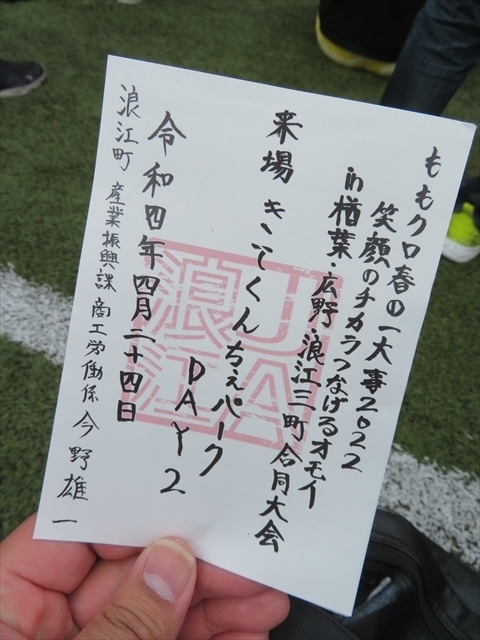 ももクロ春の一大事2022
笑顔のチカラつなげるオモイ
in 楢葉・広野・浪江三町合同大会
来場 きごくんちぇパーク
DAY2
令和四年四月二十四日
浪江町 産業振興課 商工労働係 今野雄一
JA
浪江